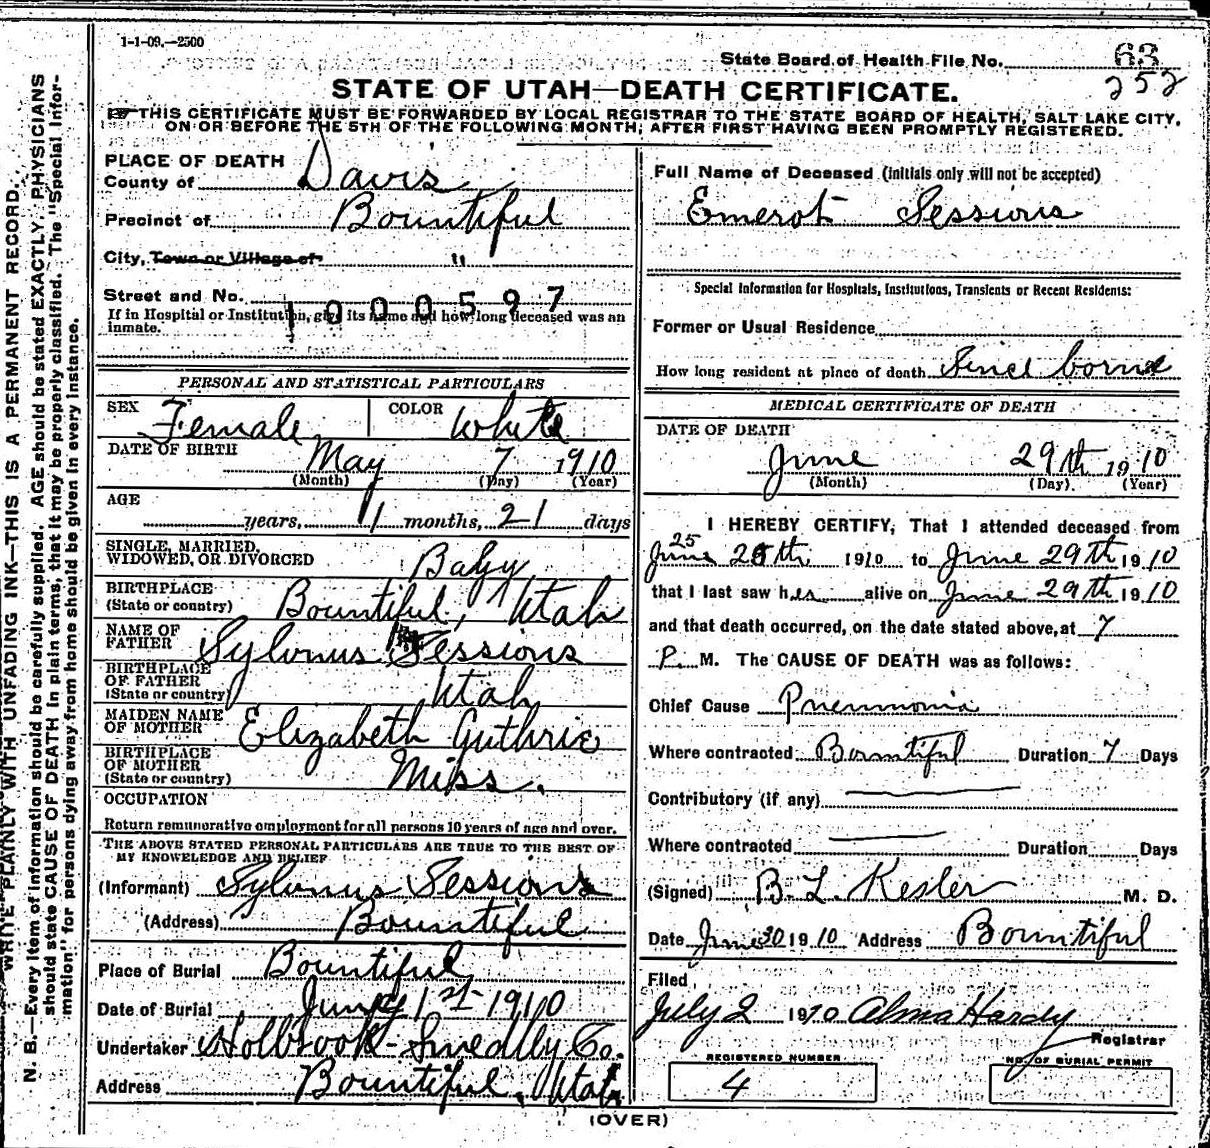 1-1-09.—2500
State Board of Health File No. 63
252
STATE OF UTAH—DEATH CERTIFICATE.
THIS CERTIFICATE MUST BE FORWARDED BY LOCAL REGISTRAR TO THE STATE BOARD OF HEALTH, SALT LAKE CITY,
ON OR BEFORE THE 5TH OF THE FOLLOWING MONTH; AFTER FIRST HAVING BEEN PROMPTLY REGISTERED.
WRITE PLAINLY WITH UNFADING INK—THIS IS A PERMANENT RECORD.
N. B.—Every item of information should be carefully supplied. AGE should be stated EXACTLY. PHYSICIANS
should state CAUSE OF DEATH in plain terms, that it may be properly classified. The "Special Infor-
mation" for persons dying away from home should be given in every instance.
PLACE OF DEATH
County of Davis
Precinct of Bountiful
City, Town or Village of "
Street and No.
1000597
If in Hospital or Institution, give its name and how long deceased was an
inmate.
PERSONAL AND STATISTICAL PARTICULARS
SEX Female COLOR White
DATE OF BIRTH May 7 1910
(Month) (Day) (Year)
AGE
years, 1 months, 21 days
SINGLE, MARRIED,
WIDOWED, OR DIVORCED Baby
BIRTHPLACE
(State or country) Bountiful, Utah
NAME OF
FATHER Sylvnus Sessions
BIRTHPLACE
OF FATHER
(State or country) Utah
MAIDEN NAME
OF MOTHER Elizabeth Guthrie
BIRTHPLACE
OF MOTHER
(State or country) Miss.
OCCUPATION
Return remunerative employment for all persons 10 years of age and over.
THE ABOVE STATED PERSONAL PARTICULARS ARE TRUE TO THE BEST OF
MY KNOWELEDGE AND BELIEF
(Informant) Sylvnus Sessions
(Address) Bountiful
Place of Burial Bountiful
Date of Burial 1st 1910
Undertaker Holbrook-Smedlly Co.
Address Bountiful, Utah
Full Name of Deceased (initials only will not be accepted)
Emerot Sessions
Special Information for Hospitals, Institutions, Transients or Recent Residents:
Former or Usual Residence
How long resident at place of death Since borne
MEDICAL CERTIFICATE OF DEATH
DATE OF DEATH
June 29th 1910
(Month) (Day). (Year)
I HEREBY CERTIFY, That I attended deceased from
25
June 25th 1910 to June 29th 1910
that I last saw her alive on June 29th 1910
and that death occurred, on the date stated above, at 7
P. M. The CAUSE OF DEATH was as follows:
Chief Cause Pneumonia
Where contracted Bountiful Duration 7 Days
Contributory (if any)
Where contracted Duration Days
(Signed) B. L. Kesler M. D.
Date June 30 1910 Address Bountiful
Filed
July 2 1910 Alma Hardy
Registrar
REGISTERED NUMBER
4
NO. OF BURIAL PERMIT
(OVER)